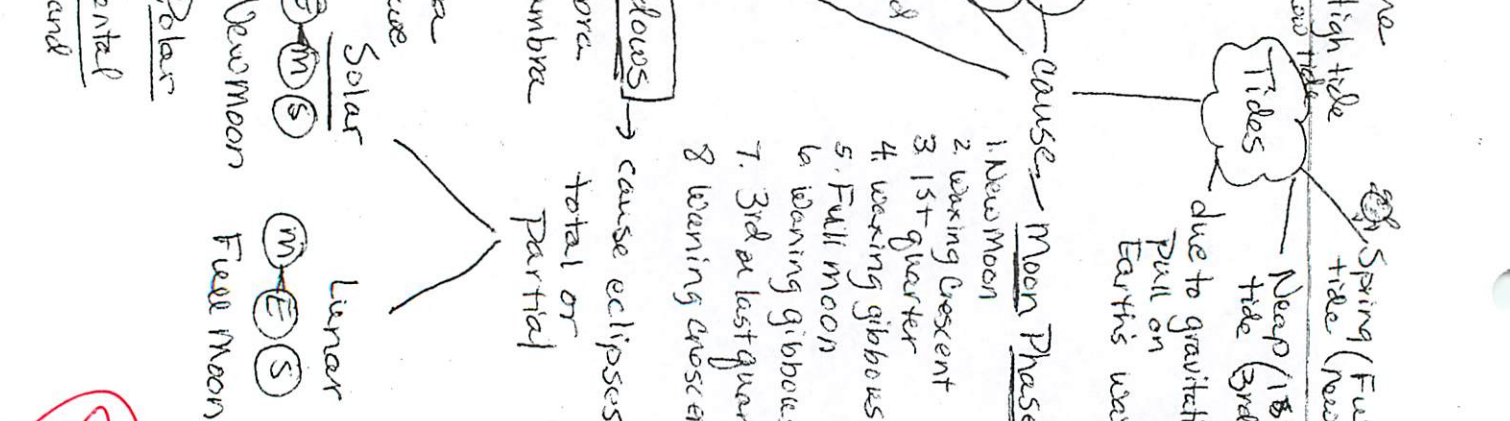 High tide
low tide
Tides
Spring (Fu
tide (new
Neap (1s
tide (3rd
due to gravitat
Pull on
Earth's wa
cause
Moon Phase
1. New Moon
2. Waxing Crescent
3. 1st quarter
4. waxing gibbous
5. Full moon
6. Waning gibbou
7. 3rd or last quar
8 Waning Crescen
dows → cause eclipses
total or
Partial
mbra
Solar
E M S
New Moon
Lunar
M E S
Full Moon
Polar
ental
and